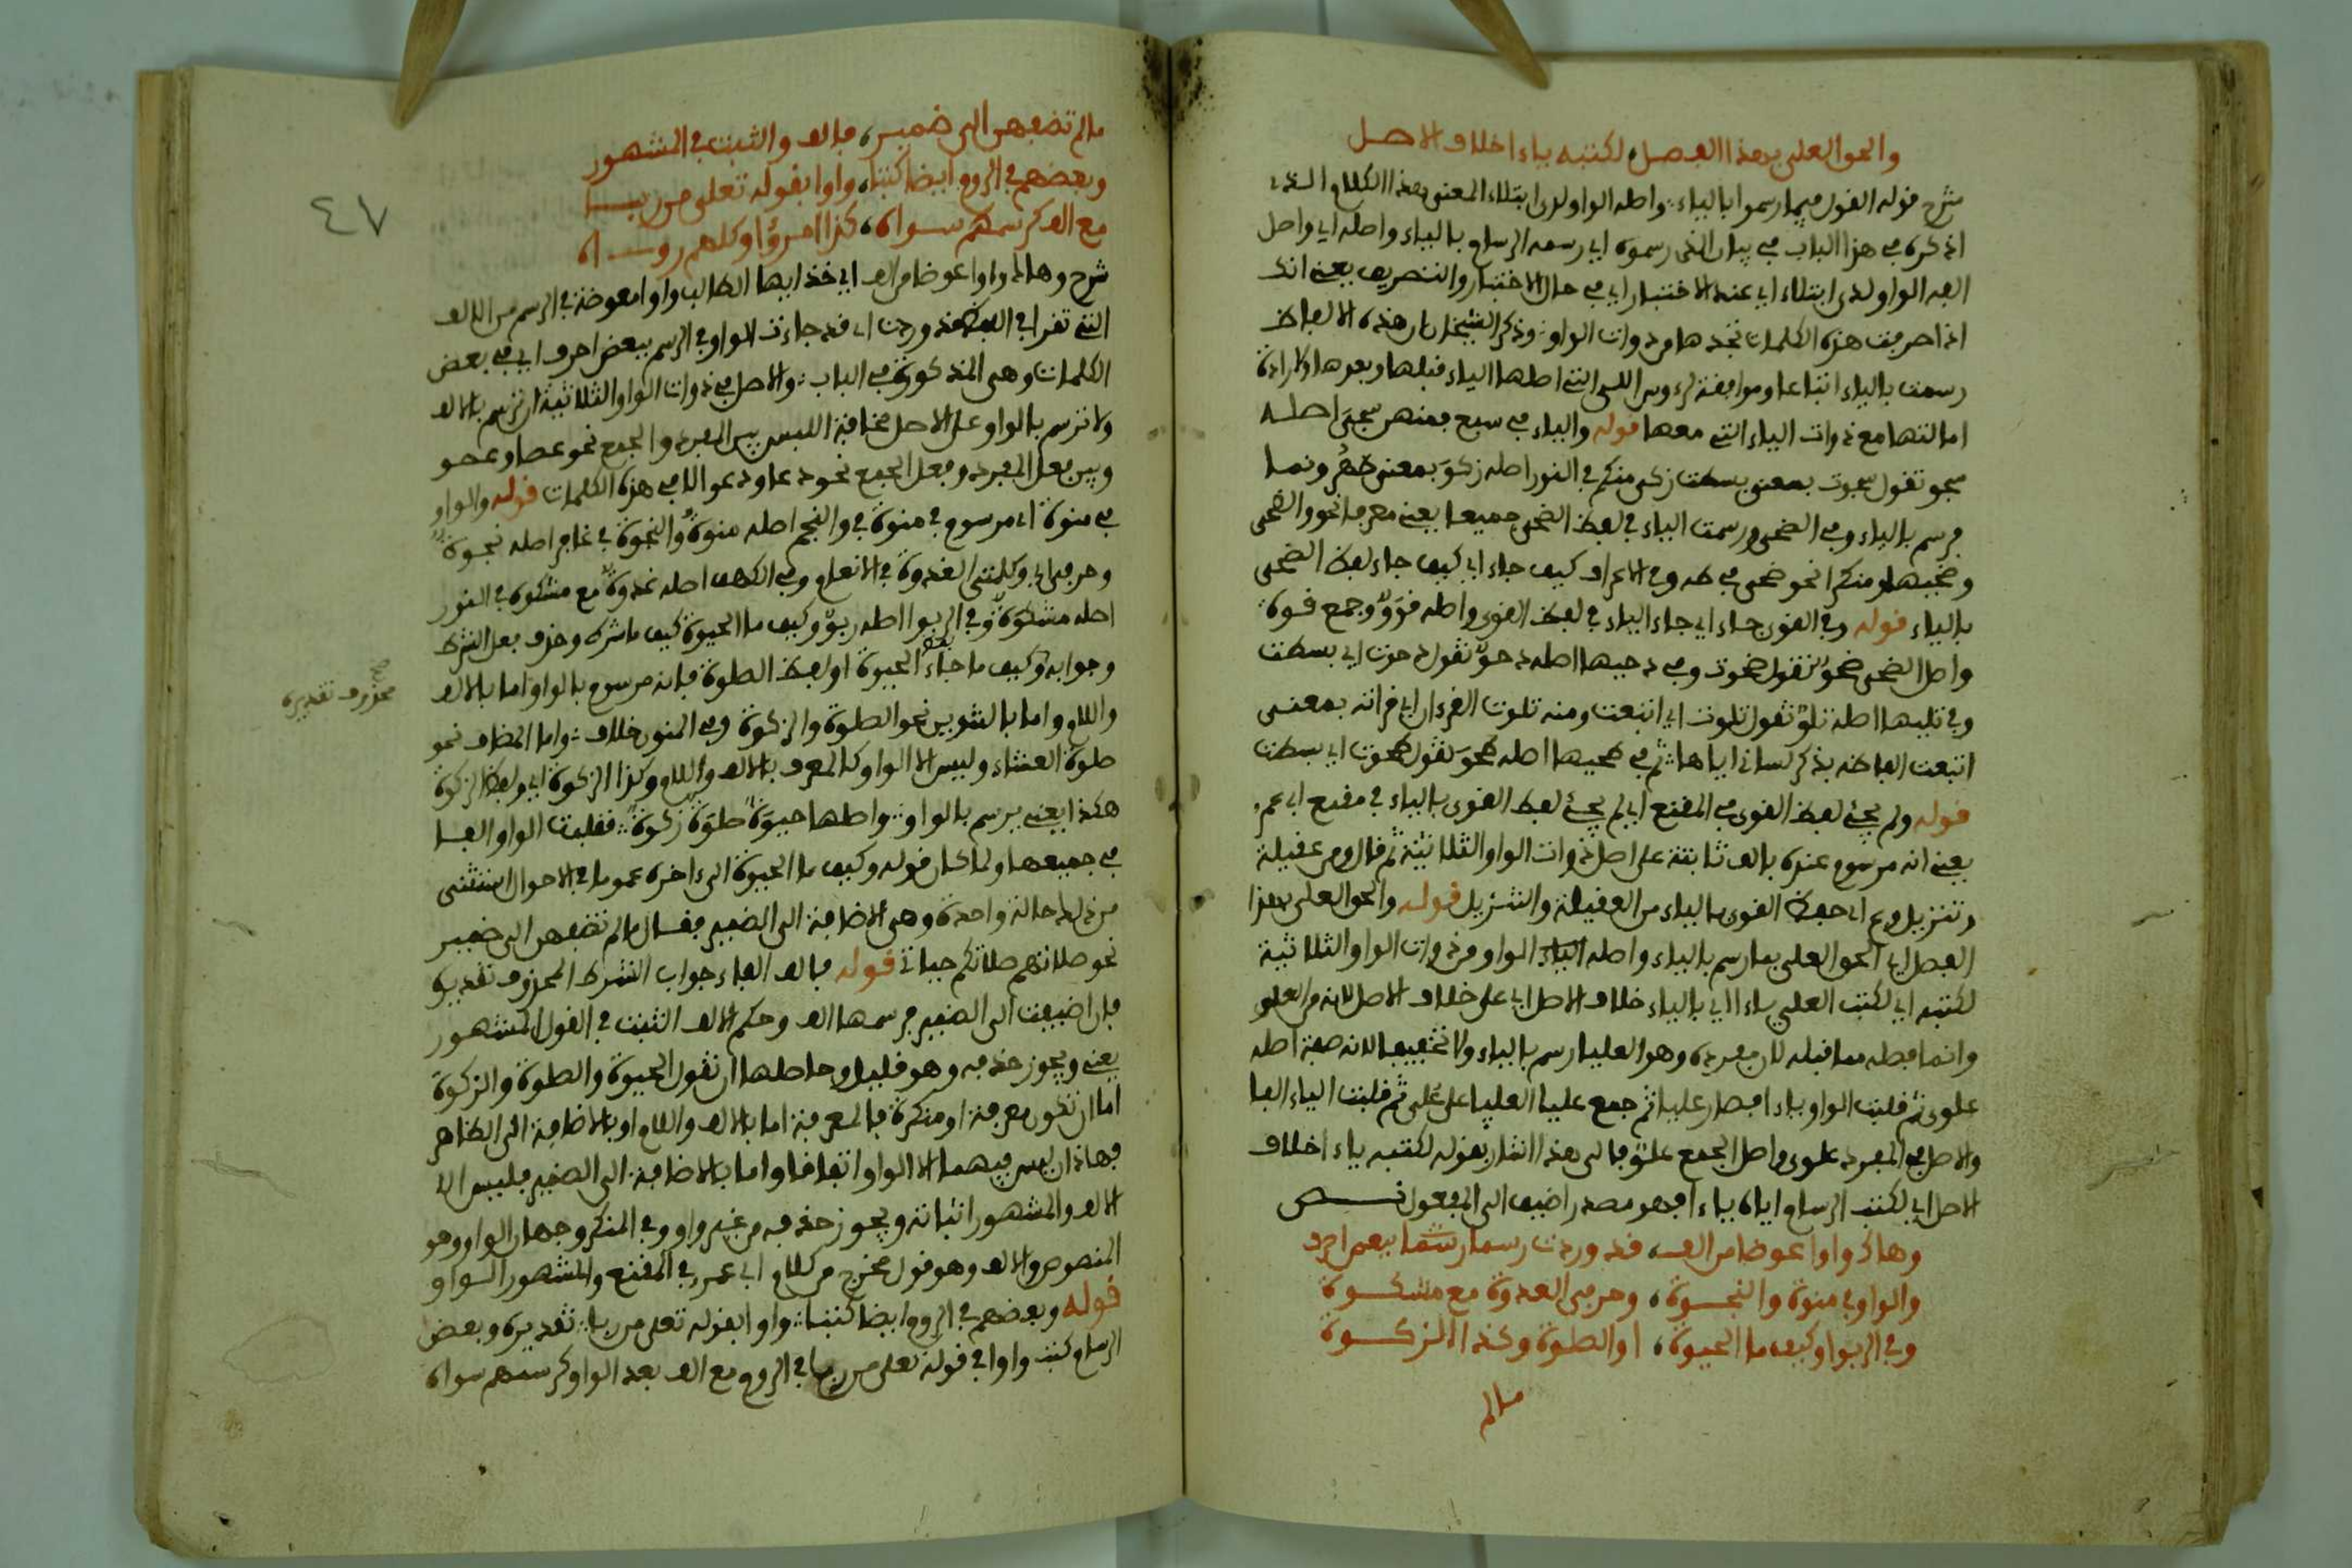 والحق العلى بهذا الفصل، لكتبه ياء اخلاف الاصل
شرح قوله القول فيما رسموا بالياء واصله الواو لدى ابتلاء المعنى هذا الكلام الذى
اذكره في هذا الباب في بيان الذى رسموه اي رسمه الرسام بالياء واصله اي واصل
الفه الواو لدى ابتلاء اي عند الاختبار اي في حال الاختبار والتصريف يعنى انك
اذا صرفت هذه الكلمات تجدها من ذوات الواو وذكر الشيخان ان هذه الالفاظ
رسمت بالياء اتباعا وموافقة لرءوس الاى التى اصلها الياء قبلها وبعدها ولارادة
امالتها مع ذوات الياء التى معها قوله والياء في سبع فمنهن سجى اصله
سجو تقول سجوت بمعنى بسطت زكى منكم في النور اصله زكو بمعنى طهر ونما
فرسم بالياء وفي الضحى ورسمت الياء في لفظ الضحى جميعا يعنى معرفا نحو والضحى
وضحيها او منكرا نحو ضحى في طه وفي الاعراف كيف جاء اي كيف جاء لفظ الضحى
بالياء قوله وفي القوى جاء اي جاء الياء في لفظ القوى واصله قوو وجمع قوة
واصل الضحى ضحو تقول ضحوت وفي دحيها اصله دحو تقول دحوت اي بسطت
وفي تليها اصله تلو تقول تلوت اي اتبعت ومنه تلوت القرءان اي قراته بمعنى
اتبعت الفاظه بذكر لسانى اياها ثم في طحيها اصله طحو تقول طحوت اي بسطت
قوله ولم يجئ لفظ القوى في المقنع اي لم يجئ لفظ القوى بالياء في مقنع ابى عمرو
يعنى انه مرسوم عنده بالف ثابتة على اصل ذوات الواو الثلاثية ثم قال ومن عقيلة
وتنزيل وعى اي حفظ القوى بالياء من العقيلة والتنزيل قوله والحق العلى بهذا
الفصل اي الحق العلى بما رسم بالياء واصله الواو من ذوات الواو الثلاثية
لكتبه اي لكتب العلى ياء اي بالياء خلاف الاصل اي على خلاف الاصل لانه من العلو
وانما فصله مما قبله لان مفرده وهو العليا رسم بالياء ولا تخفيفا لانه صفة اصله
علوى ثم قلبت الواو ياء فصار عليا ثم جمع عليا العليا على على ثم قلبت الياء الفا
والاصل في المفرد علوى واصل الجمع علو فالى هذا اشار بقوله لكتبه ياء اخلاف
الاصل اي لكتب الرسام اياه ياء فهو مصدر اضيف الى المفعول نص
وهاك واوا عوضا من الف، قد وردت رسما ببعض احرف
والواو في منوة والنجوة، وحرفى الغدوة مع مشكوة
وفي الربوا وكيف ما الحيوة، او الصلوة وكذا الزكوة
مالم
٤٧
مالم تضفهن الى ضمير، فالف والثبت في المشهور
وبعضهم في الروم ايضا كتبا، واوا بقوله تعلى من ربا
مع الف كرسمهم سواه، كذا امرؤا وكلهم رواه
شرح وهاك واوا عوضا من الف اي خذ ايها الطالب واوا معوضة في الرسم من الالف
التى تقرا في اللفظ قد وردت اي قد جاءت الواو في الرسم ببعض احرف اي في بعض
الكلمات وهى المذكورة في الباب والاصل في ذوات الواو الثلاثية ان ترسم بالالف
ولا ترسم بالواو على الاصل مخافة اللبس بين المفرد والجمع نحو عصا وعصو
وبين فعل المفرد وفعل الجمع نحو دعا ودعوا الا في هذه الكلمات قوله والواو
في منوة اي مرسوم في منوة في والنجم اصله منوة والنجوة في غافر اصله نجوة
وحرفى اي وكلمتى الغدوة في الانعام وفي الكهف اصله غدوة مع مشكوة في النور
اصله مشكوة وفي الربوا اصله ربو وكيف ما الحيوة كيف ما شرط وحذف فعل الشرط
وجوابه وكيف ما جاء لفظ الحيوة او لفظ الصلوة فانه مرسوم بالواو اما بالالف
محذوف تقديره صح
واللام واما بالتنوين نحو الصلوة والزكوة وفي المنون خلاف واما المضاف نحو
صلوة العشاء وليس الا الواو كالمعرف بالالف واللام وكذا الزكوة اي ولفظ الزكوة
هكذا يعنى يرسم بالواو واصلها حيوة صلوة زكوة فقلبت الواو الفا
في جميعها ولما كان قوله وكيف ما الحيوة الى اخره عموما في الاحوال استثنى
من ذلك حالة واحدة وهى الاضافة الى الضمير فقال مالم تضفهن الى ضمير
نحو صلاتهم صلاتكم حياتى قوله فالف الفاء جواب الشرط المحذوف تقديره
فان اضيفت الى الضمير فرسمها الف وحكم الالف الثبت في القول المشهور
يعنى ويجوز حذفه وهو قليل وحاصلها ان تقول الحيوة والصلوة والزكوة
اما ان تكون معرفة او منكرة فالمعرفة اما بالالف واللام او بالاضافة الى الظاهر
فهاذان ليس فيهما الا الواو اتفاقا واما بالاضافة الى الضمير فليس الا
الالف والمشهور اثباته ويجوز حذفه من غير واو وفي المنكر وجهان الواو وهو
المنصوص والالف وهو قول مخرج من كلام ابى عمرو في المقنع والمشهور الواو
قوله وبعضهم في الروم ايضا كتبا واوا بقوله تعلى من ربا تقديره وبعض
الرسام كتب واوا في قوله تعلى من ربا في الروم مع الف بعد الواو كرسمهم سواه